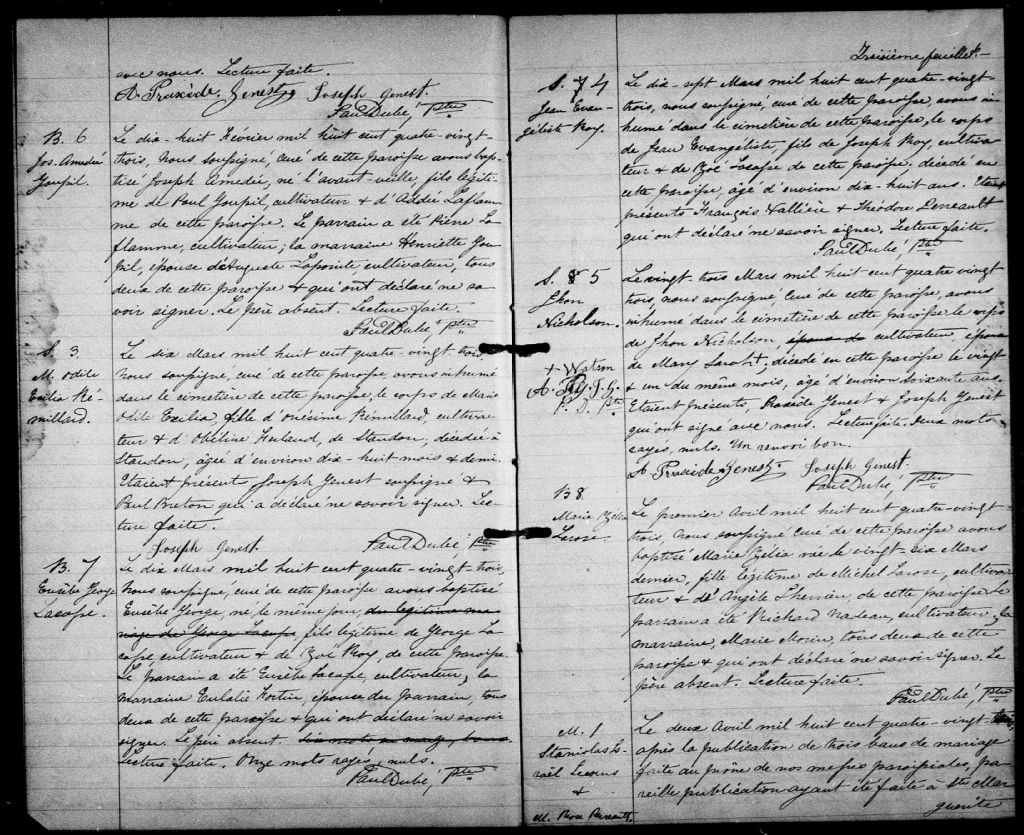 avec nous. Lecture faite.
A. Praxède Genest, Joseph Genest.
Paul Dubé, Ptre
B. 6
Jos. Amedée
Goupil.
Le dix-huit Février mil huit cent quatre-vingt-
trois, Nous soussigné, curé de cette paroisse avons bap-
tisé Joseph Amedée, né l'avant-veille, fils légiti-
me de Paul Goupil, cultivateur & d'Addée Laflam-
me de cette paroisse. Le parrain a été Pierre La-
flamme, cultivateur; la marraine Henriette Gou-
pil, épouse d'Auguste Lapointe, cultivateur, tous
deux de cette paroisse & qui ont déclaré ne sa-
voir signer. Le père absent. Lecture faite.
Paul Dubé, Ptre
S. 3.
M. Odile
Exilia Ré-
millard.
Le six Mars mil huit cent quatre-vingt trois,
Nous soussigné, curé de cette paroisse, avons inhumé
dans le cimetière de cette paroisse, le corps de Marie
Odile Exilia, fille d'Onésime Rémillard, cultiva-
teur & d'Obéline, de Standon, décédée à
Standon, âgée d'environ dix-huit mois & demi.
Etaient présents Joseph Genest soussigné &
Paul Breton qui a déclaré ne savoir signer. Lec-
ture faite.
Joseph Genest. Paul Dubé, Ptre
B. 7
Eusèbe George
Lacasse.
Le dix Mars mil huit cent quatre-vingt-trois,
Nous soussigné, curé de cette paroisse avons baptisé
Eusèbe George, né le même jour, du légitime ma-
riage de George Lacasse, fils légitime de George La-
casse, cultivateur & de Zoé Roy, de cette paroisse.
Le parrain a été Eusèbe Lacasse, cultivateur; la
marraine Eulalie Fortin, épouse du parrain, tous
deux de cette paroisse & qui ont déclaré ne savoir
signer. Le père absent. Six mots en marge, bons.
Lecture faite. Onze mots rayés, nuls.
Paul Dubé, Ptre
Troisième feuillet.-
S. 4
Jean Evan-
géliste Roy.
Le dix-sept Mars mil huit cent quatre-vingt-
trois, nous soussigné, curé de cette paroisse, avons in-
humé dans le cimetière de cette paroisse, le corps
de Jean Evangeliste, fils de Joseph Roy, cultiva-
teur & de Zoé Lacasse de cette paroisse, décédé en
cette paroisse, âgé d'environ dix-huit ans. Etaient
présents François Vallière & Théodore
qui ont déclaré ne savoir signer. Lecture faite.
Paul Dubé, Ptre
S. 5
Jhon
Nicholson.
Le vingt-trois Mars mil huit cent quatre vingt
trois, nous soussigné curé de cette paroisse, avons
inhumé dans le cimetière de cette paroisse le corps
de Jhon Nicholson, épouse de cultivateur, époux
de Mary Sarah +, décédé en cette paroisse le vingt
& un du même mois, âgé d'environ soixante ans.
Etaient présents, Praxède Genest & Joseph Genest
qui ont signé avec nous. Lecture faite. Deux mots
rayés, nuls. Un renvoi bon.
+ Watson
A. P. G. J. G.
P. D. Ptre
A. Praxède Genest. Joseph Genest.
Paul Dubé, Ptre
B 8
Marie Zélia
Larose.
Le premier Avril mil huit cent quatre-vingt-
trois, Nous soussigné curé de cette paroisse avons
baptisé Marie Zélia née le vingt-six Mars
dernier, fille légitime de Michel Larose, cultiva-
teur & de Angèle Therrien, de cette paroisse. Le
parrain a été Richard Nadeau, cultivateur, la
marraine, Marie Morin, tous deux de cette
paroisse & qui ont déclaré ne savoir signer. Le
père absent. Lecture faite.
Paul Dubé, Ptre
M. 1
Stanislas Is-
raël Lecours
&
M. Rose Perreault.
Le deux Avril mil huit cent quatre-vingt-trois,
après la publication de trois bans de mariage
faite au prône de nos messes paroissiales, pa-
reille publication ayant été faite à Ste Mar-
guerite